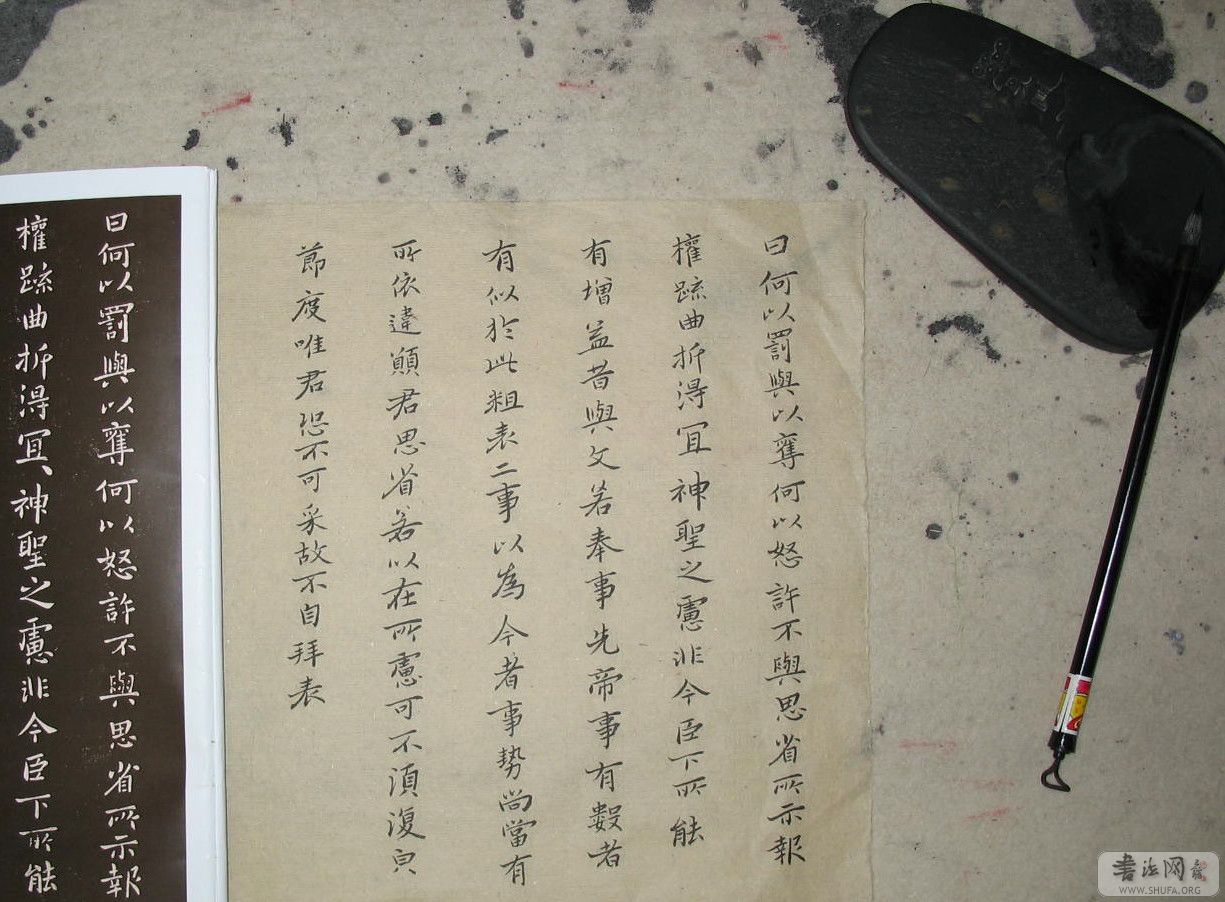 曰何以罰與以奪何以怒許不與思省所示報
權疏曲折得宜神聖之慮非今臣下所能
有增益昔與文若奉事先帝事有數者
有似於此粗表二事以為今者事勢尚當有
所依違願君思省若以在所慮可不須復究
節度唯君恐不可采故不自拜表
曰何以罰與以奪何以怒許不與思省所示報
權疏曲折得宜神聖之慮非今臣下所能
書法网
WWW.SHUFA.ORG